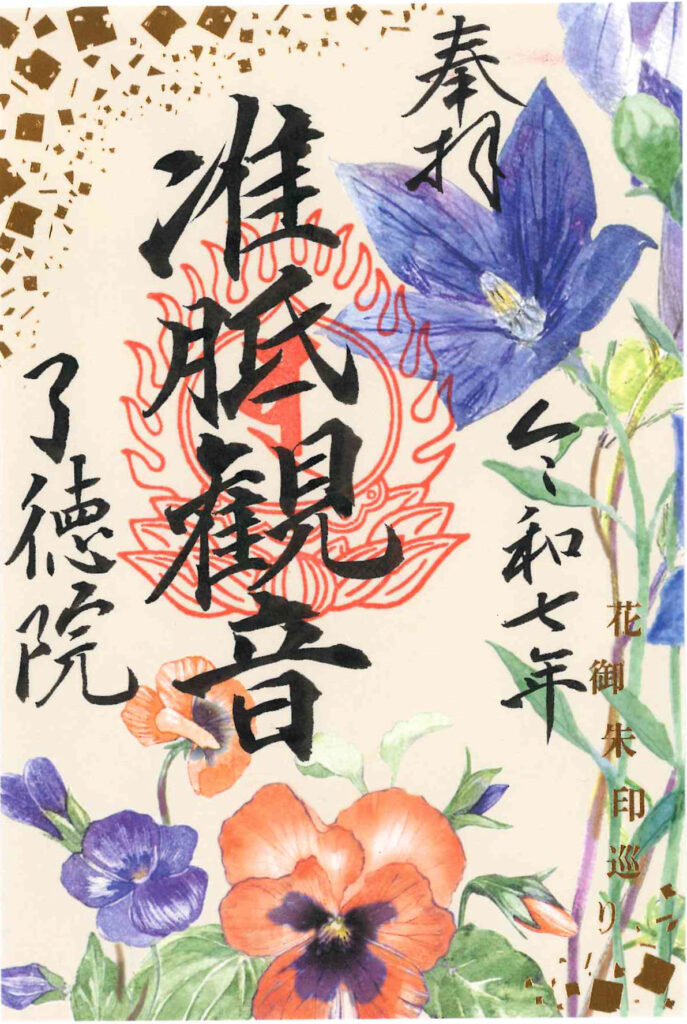 奉拝
令和七年
花御朱印巡り
准胝観音
了徳院